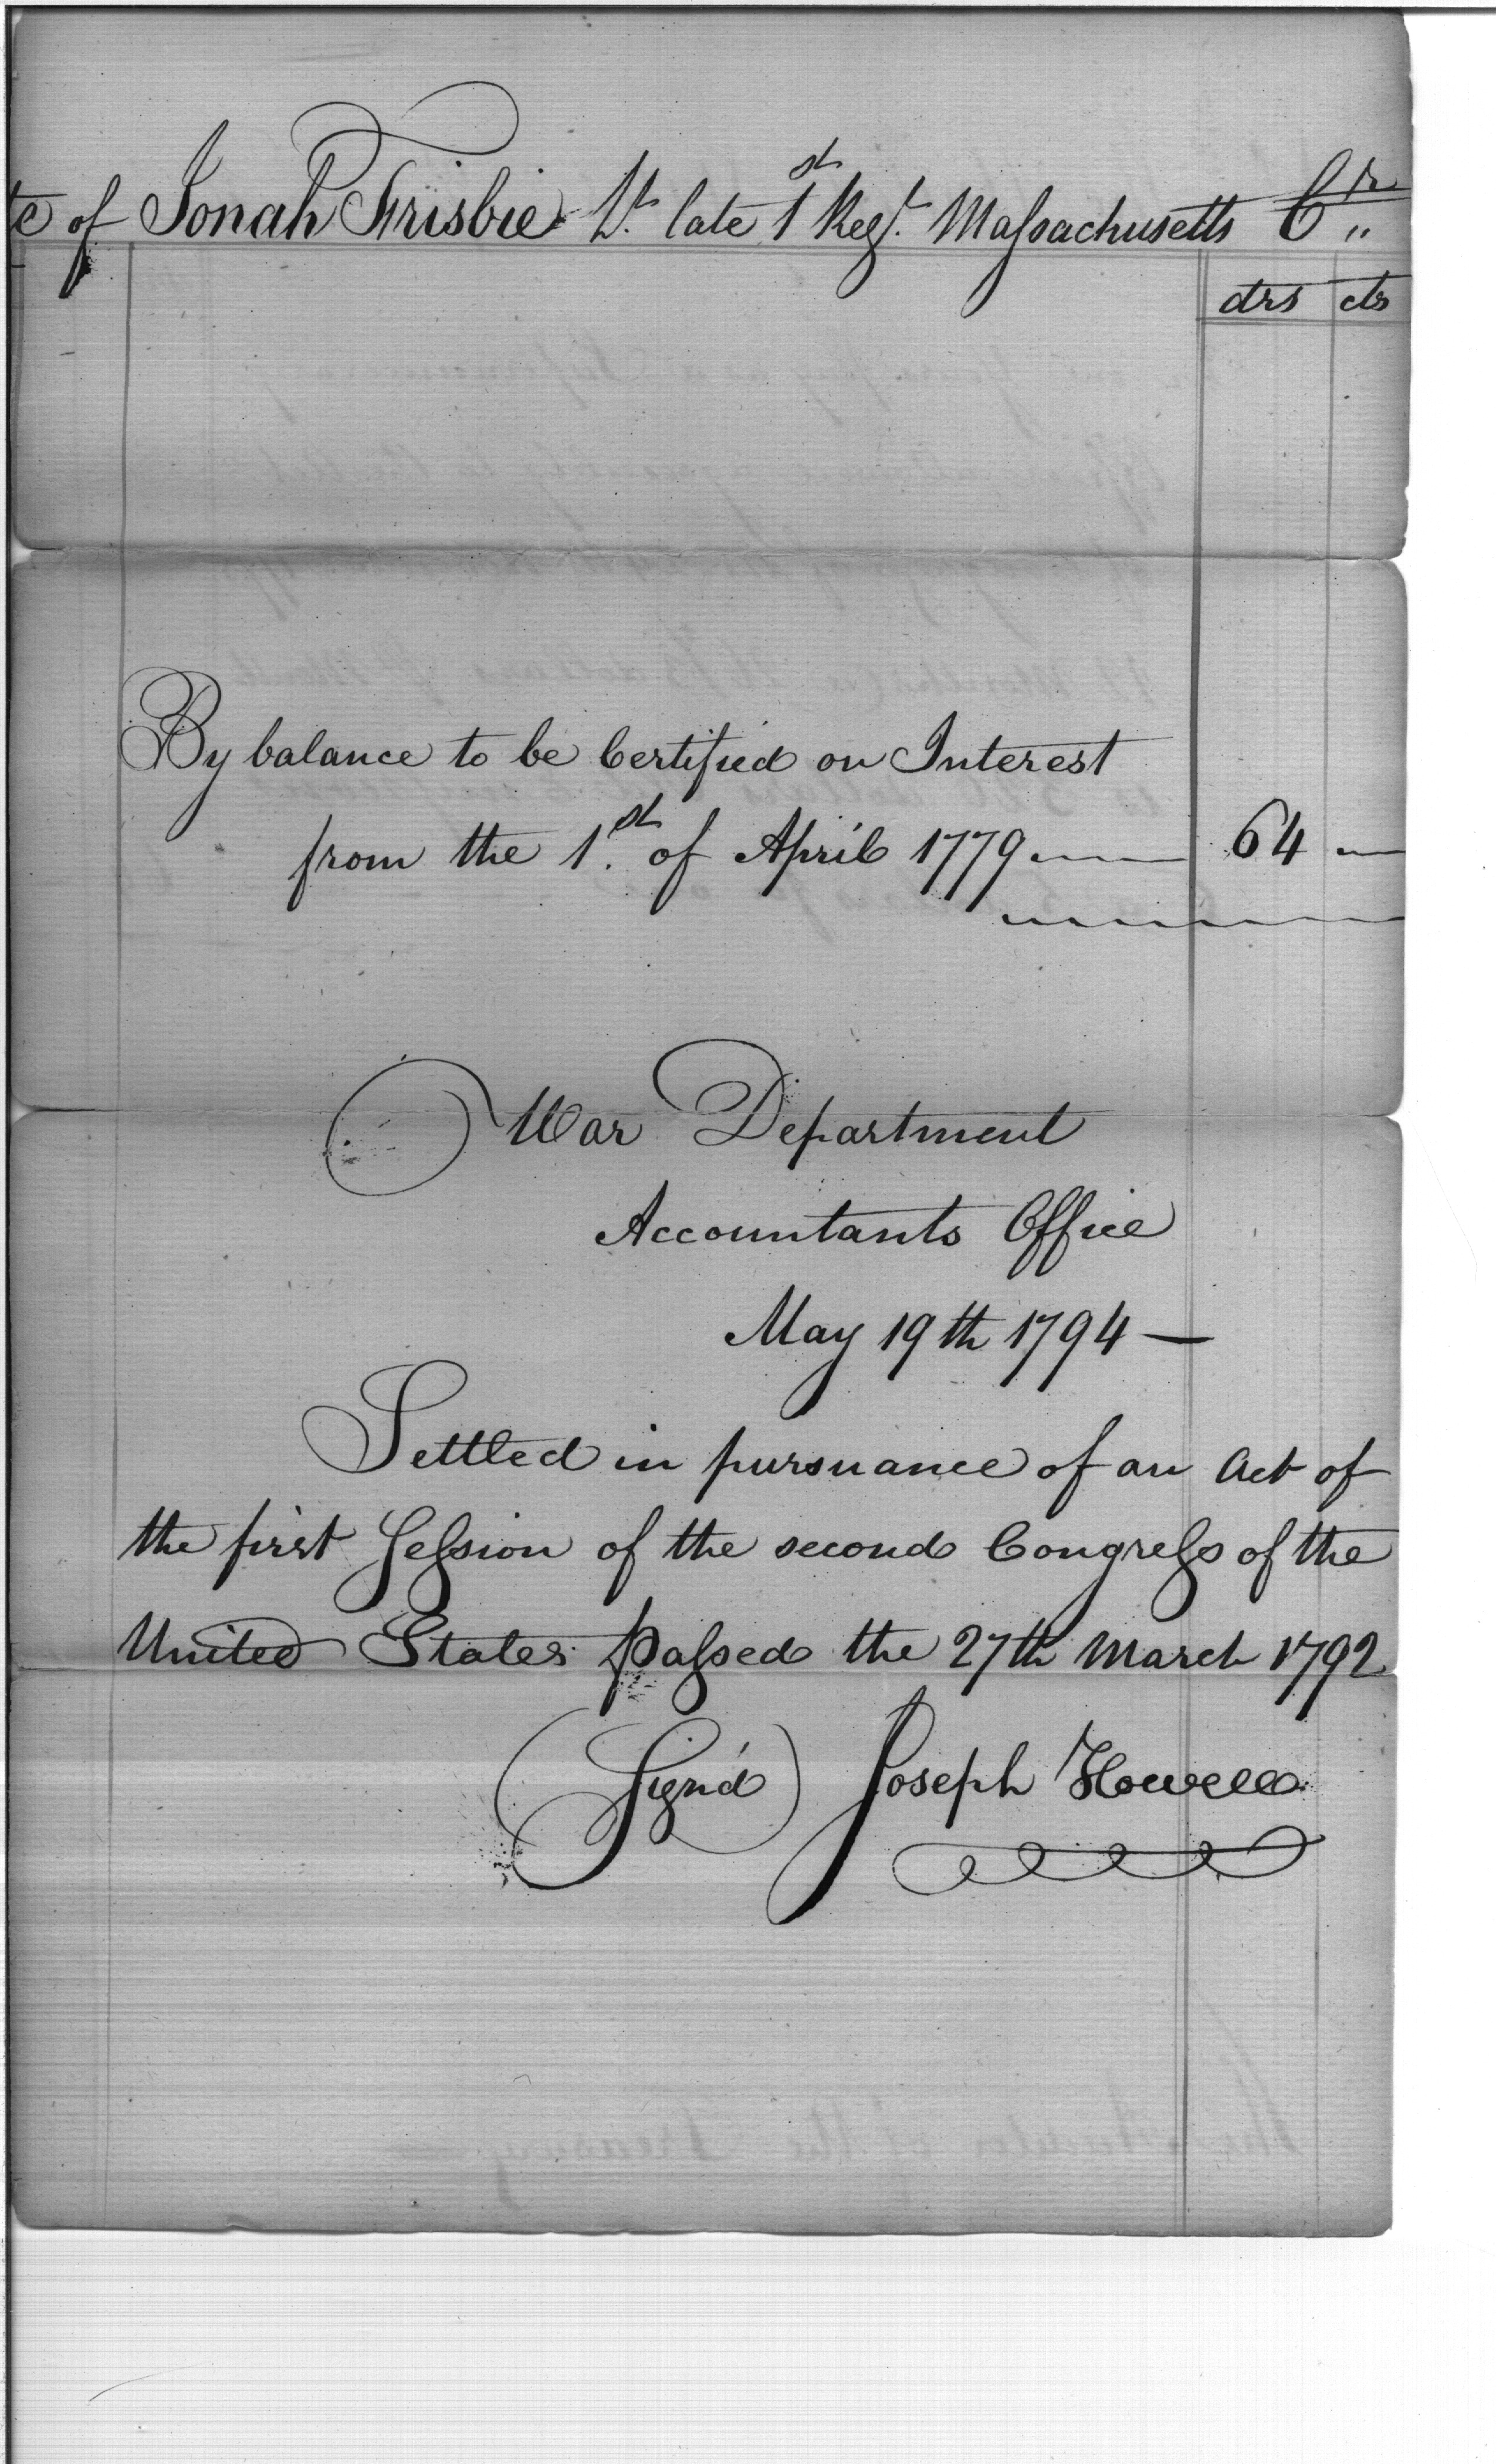 te of Jonah Frisbie Lt. late 1st Regt. Massachusetts Cr "
drs cts
By balance to be Certified on Interest
from the 1st. of April 1779 — 64 —
War Department
Accountants Office
May 19th 1794 —
Settled in pursuance of an Act of
the first Session of the second Congress of the
United States passed the 27th March 1792
(Sign'd) Joseph Howell